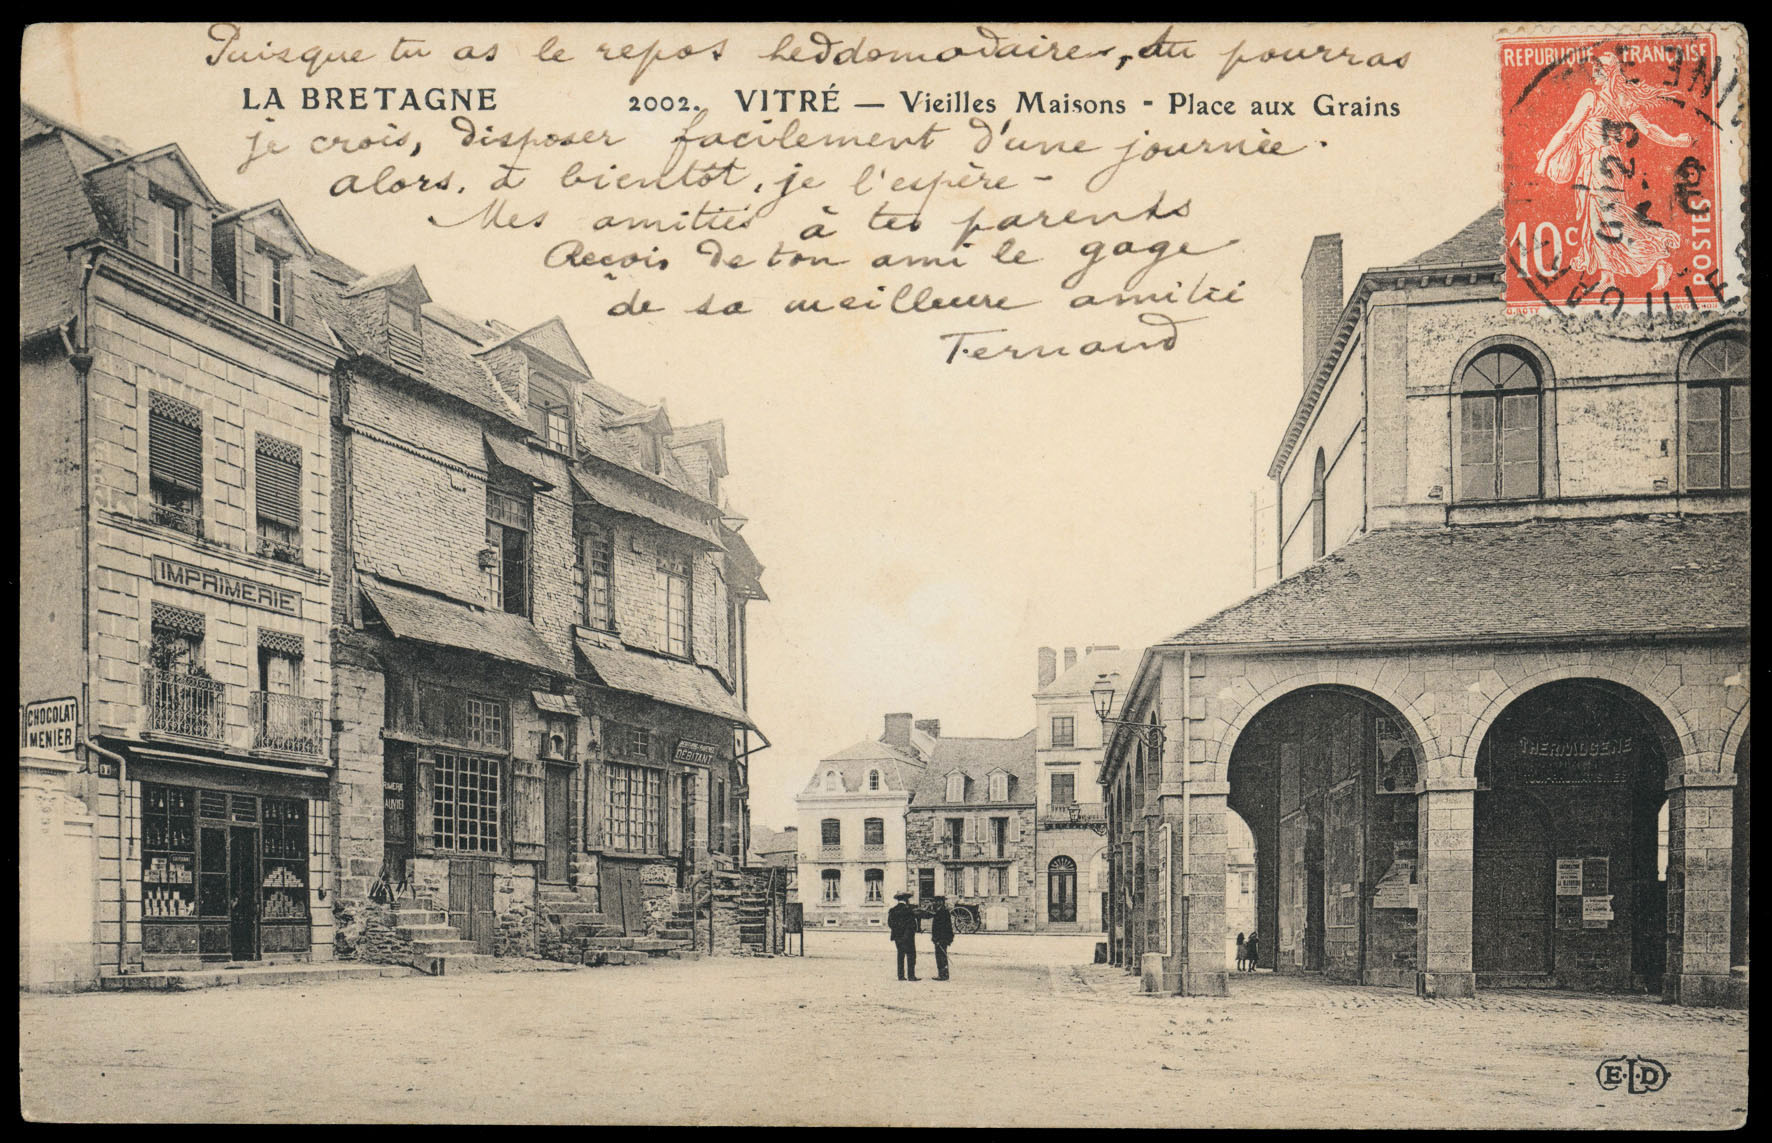 Puisque tu as le repos heddomadaire, tu pourras
LA BRETAGNE 2002. VITRÉ — Vieilles Maisons - Place aux Grains
je crois, disposer facilement d'une journée.
alors, à bientôt, je l'espère -
Mes amitiés à tes parents
Reçois de ton ami le gage
de sa meilleure amitié
Fernand
REPUBLIQUE FRANÇAISE
10c
POSTES
IMPRIMERIE
CHOCOLAT
MENIER
DEBITANT
THERMOGÈNE
E.L.D